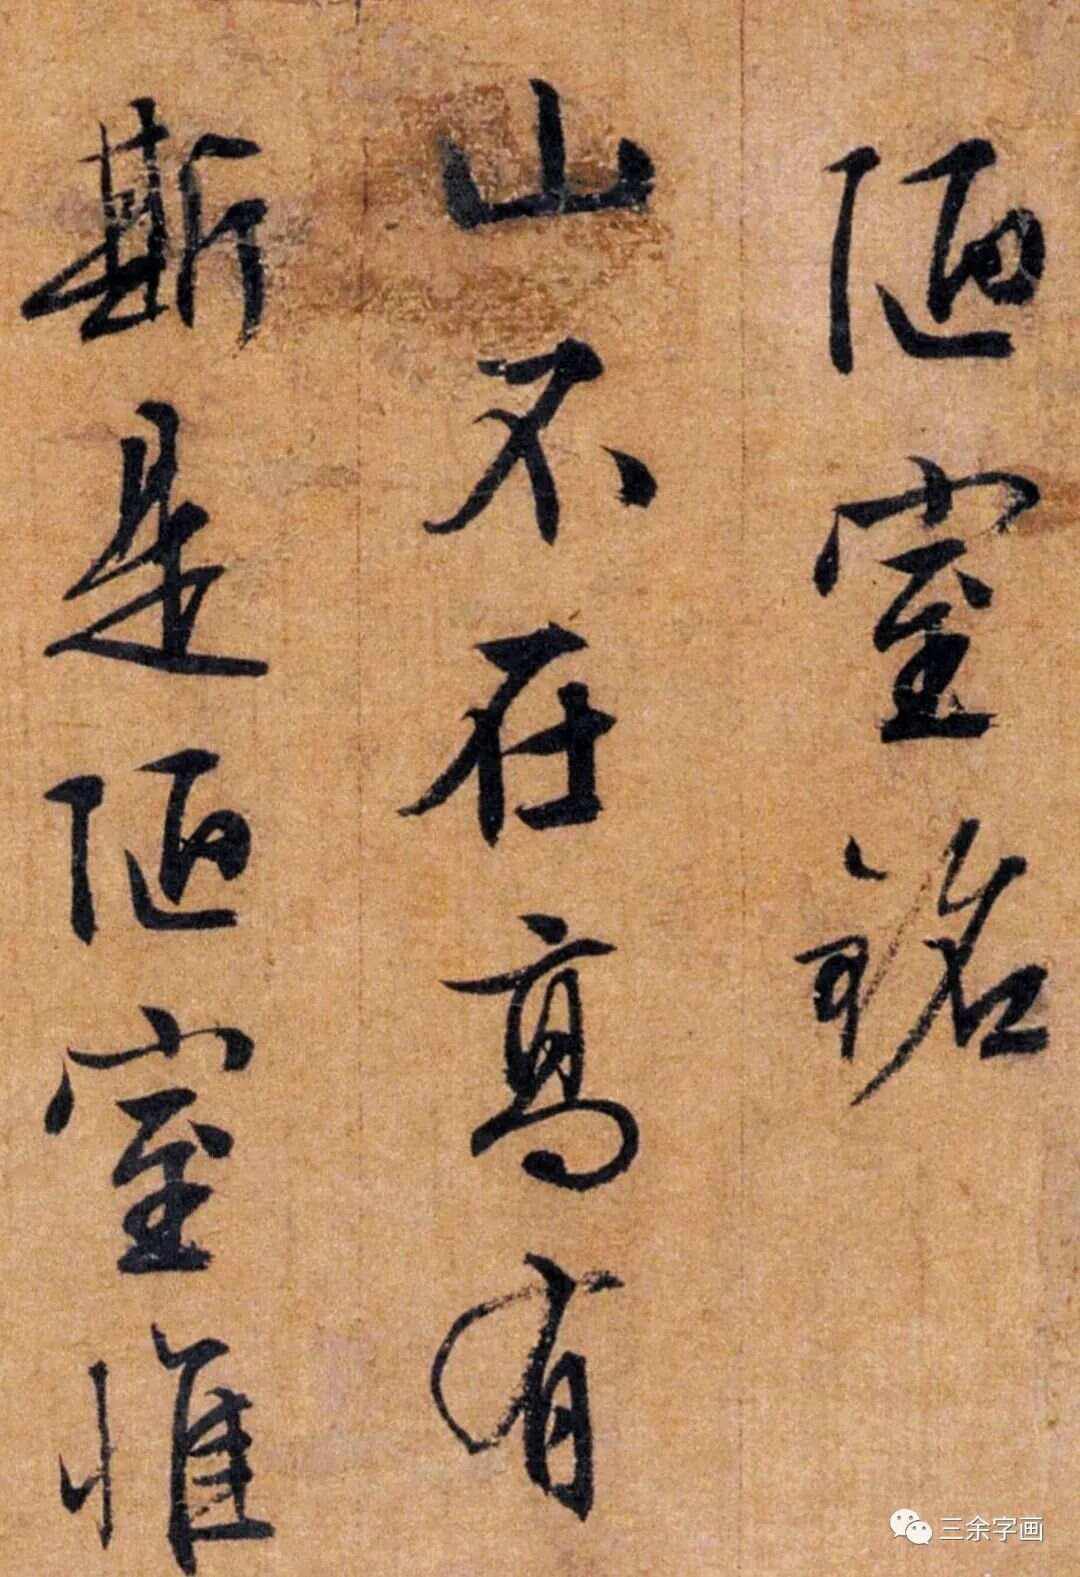 陋室铭
山不在高有
斯是陋室惟
三余字画